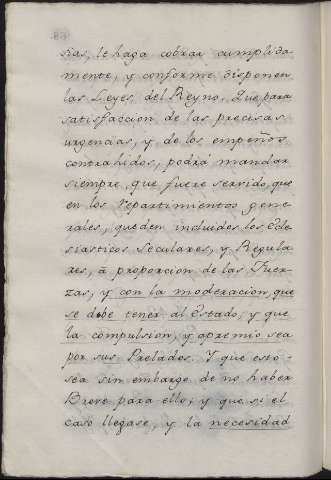 sias, le haga cobrar cumplida-
mente, y conforme disponen
las Leyes del Reyno. Que para
satisfaccion de las precisas
urgencias, y de los empeños
contrahidos, podrá mandar
siempre, que fuere servido, que
en los repartimientos gene-
rales, queden incluidos los Ecle-
siasticos Seculares, y Regula-
res, á proporcion de las Fuer-
zas, y con la moderacion, que
se debe tener al Estado, y que
la compulsion, y apremio sea
por sus Prelados. Y que esto
sea sin embargo de no haber
Breve para ello, y que si el
caso llegase, y la necesidad